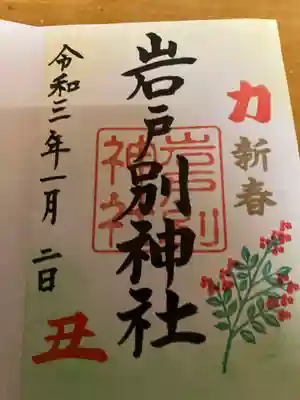 力
新春
岩戸別神社
岩戸別
神社
令和三年一月二日
丑